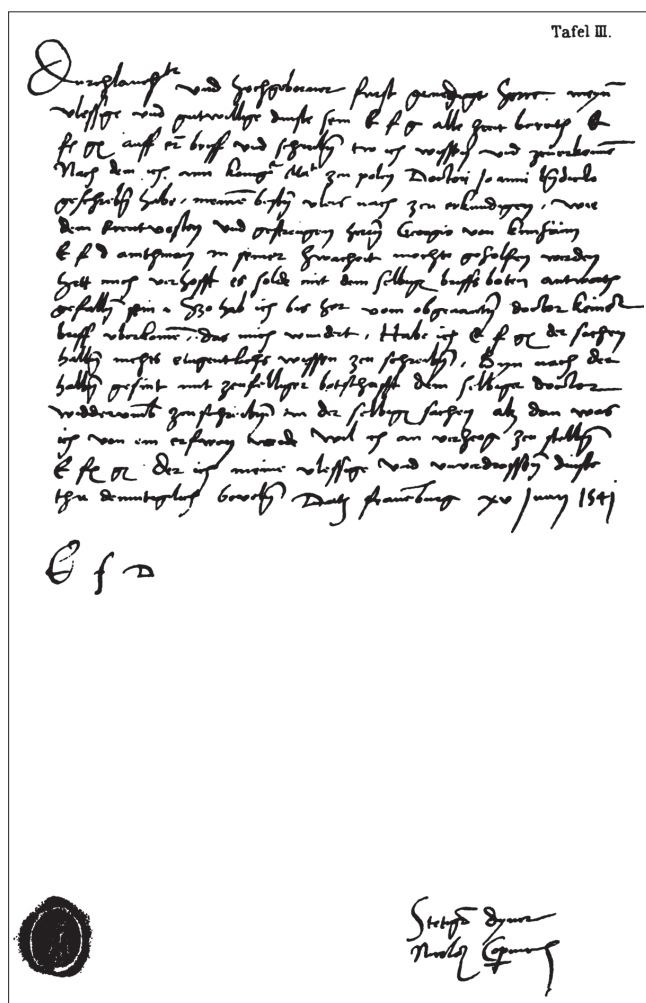 Tafel III.
Durchlauchter und Hochgeborner furst genediger Herre. meyn
vlessige und gutwillige dinste sein E f g alle zeit bereith E
fe ge auff er briff und schreiben thu ich wissen und
Nach dem ich am konigr Mat zu polen Doctori Joanni
geschrieben habe, meinen besten vleis nach zu erkundigen, wie
dem und gestrengen herrn Georgio von
E f d amthman in seiner swacheit mochte geholfen werden
hett mich verhofft es solde mit dem selbige briffs boten antwurth
gefallen sein Szo hab ich bis her vom obgenanten doctor
briff uberkomen, das mich wundert, Habe ich E f ge der sachen
halben nichts eigentlichs wissen zu schreiben, Byn nach der
halben gesint mit zufelliger botschafft dem selbige doctor
widderumb zu schreiben in der selbige sachen als dan was
ich von im erfaren werde wil ich an verzog zu stellen
E fe ge der ich meine vlessige und unverdrossen dinste
thu demutiglich bevelen Datum frauenburg xv Juny 1541
E f D
dyner
Copernicus